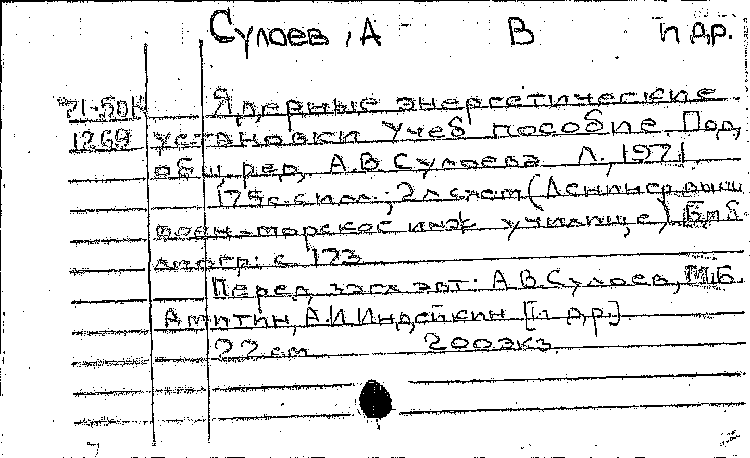 Сулоев, А В и др.
71-50К Ядерные энергетические
1269 установки Учеб пособие. Под
общ ред, А.В Сулоева Л., 1971
175с. с илл.; 2 л схем (Ленингр. высш
воен-морское инж училище) Биб
лиогр: с 173
Перед загл авт: А.В. Сулоев, М.Б.
Амитин, А.И. Индейкин [и др.].
22 см 200экз.